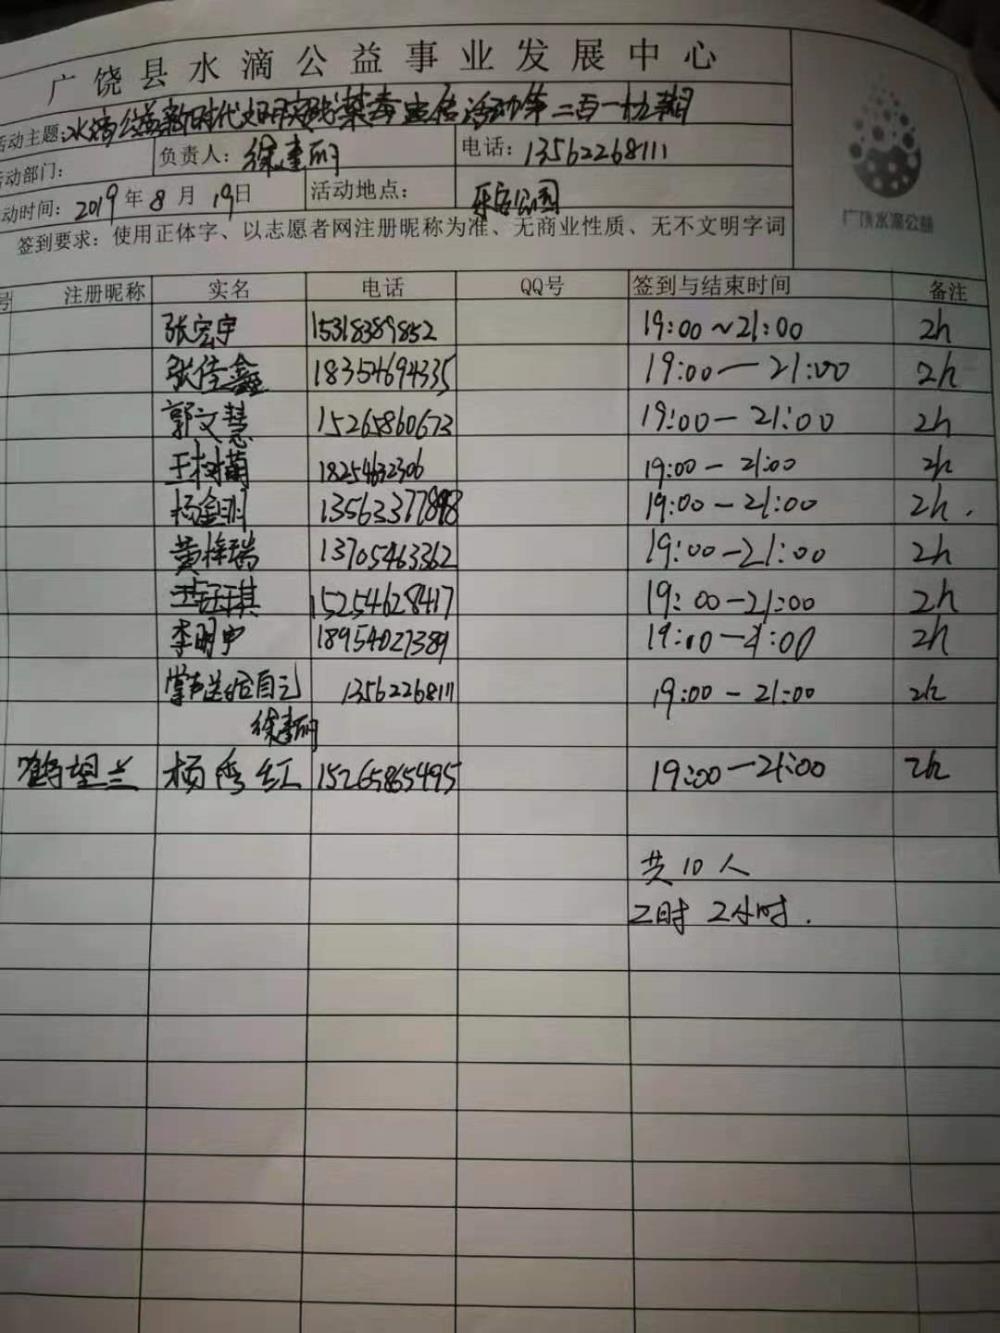 广饶县水滴公益事业发展中心
活动主题：水滴公益新时代文明实践禁毒宣传活动第二百一十五期
动部门： 负责人：徐建丽 电话：13562268111
动时间：2019年8月19日 活动地点：乐安公园
签到要求：使用正体字、以志愿者网注册昵称为准、无商业性质、无不文明字词
广饶水滴公益
号 注册昵称 实名 电话 QQ号 签到与结束时间 备注
张宏宇 15318389852 19:00～21:00 2h
张佳鑫 18354694335 19:00—21:00 2h
郭文慧 15265860673 19:00—21:00 2h
王树菊 18254632306 19:00—21:00 2h
杨金 19:00—21:00 2h.
黄梓瑞 13705463362 19:00—21:00 2h
琪 15254628417 19:00—21:00 2h
李明 18954027389 19:00—21:00 2h
掌声送给自己 13562268111 19:00—21:00 2h
徐建丽
鹤望兰 杨秀红 15265865495 19:00—21:00 2h
共10人
2时 2小时.